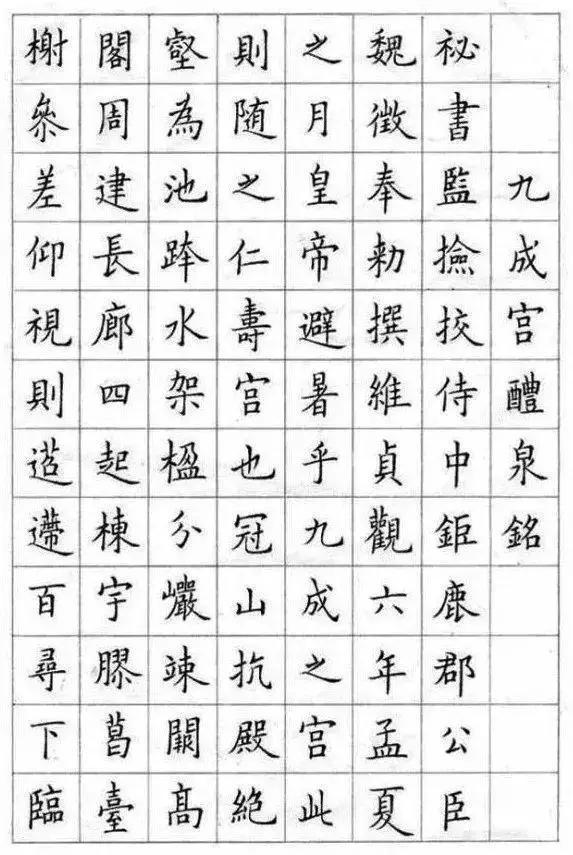 九成宫醴泉銘
祕書監撿挍侍中鉅鹿郡公臣
魏徵奉勅撰維貞觀六年孟夏
之月皇帝避暑乎九成之宫此
則随之仁壽宫也冠山抗殿絶
壑為池跨水架楹分巗竦闕髙
閣周建長廊四起棟宇膠葛臺
榭參差仰視則迢遰百尋下臨